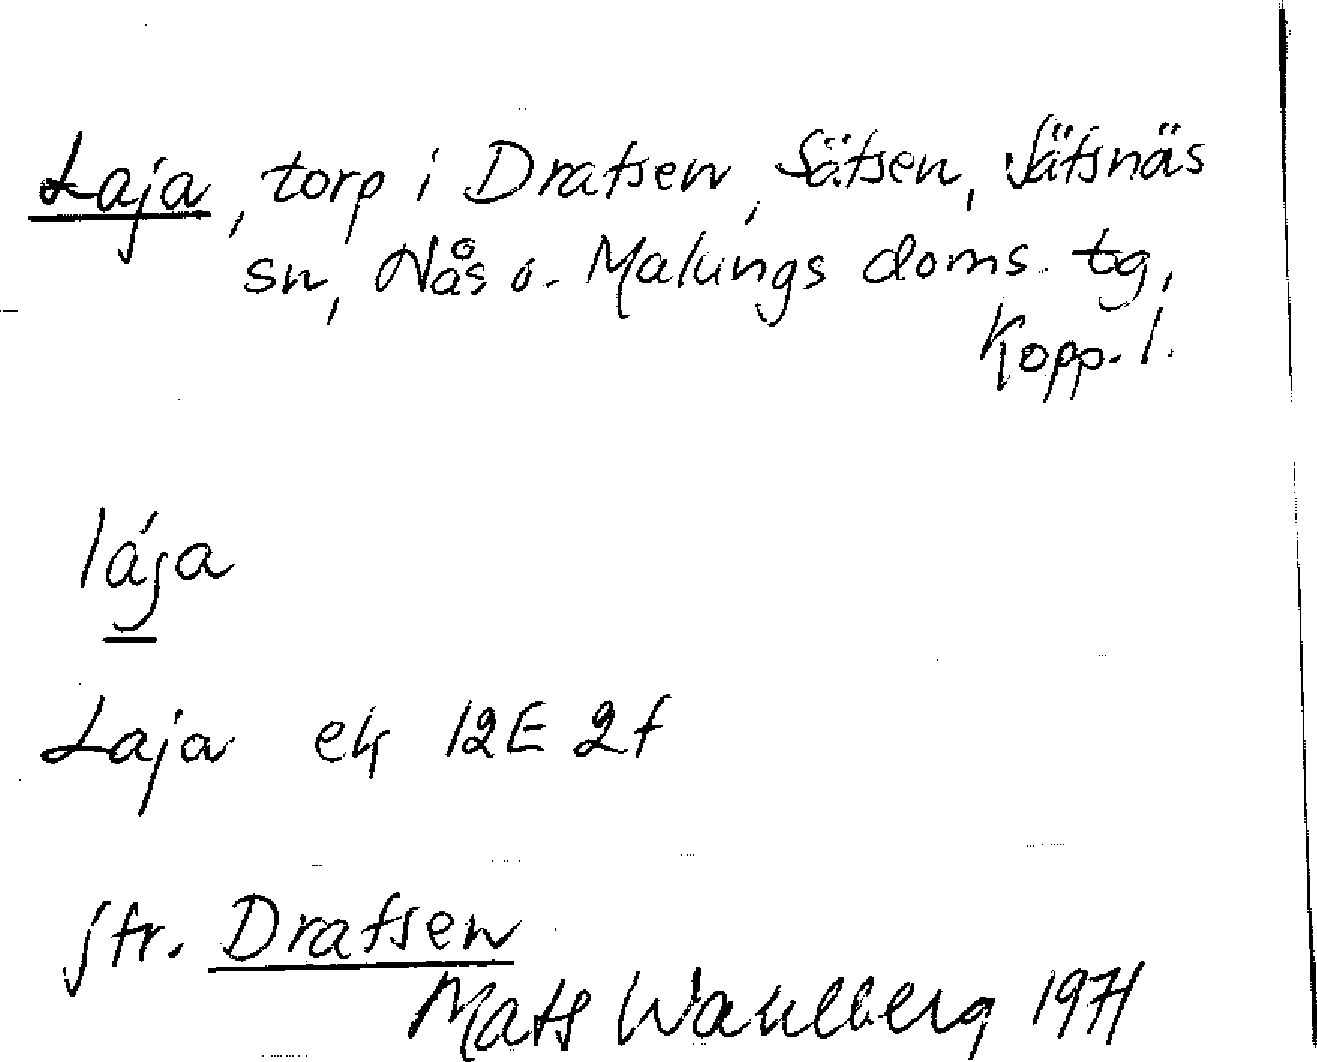 Laja, torp i Dratsen, Sätsen, Sätsnäs
sn, Nås o. Malungs doms. tg,
Kopp. l.
lája
Laja ek 12E 2f
jfr. Dratsen
Mats Wahlberg 1971